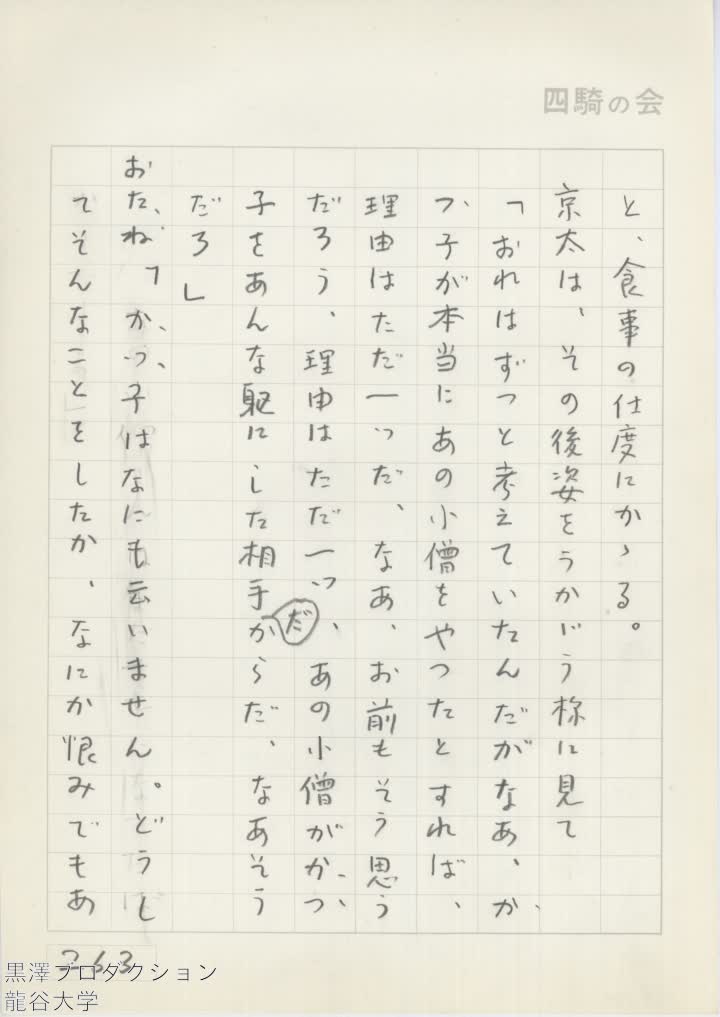 四騎の会
と、食事の仕度にかゝる。
京太は、その後姿をうかがう様に見て
「おれはずっと考えていたんだがなあ、か
つ子が本当にあの小僧をやったとすれば、
理由はただ一つだ、なあ、お前もそう思う
だろう、理由はただ一つだ、あの小僧がかつ
子をあんな躯にした相手だからだ、なあそう
だろ」
おたね「かつ子はなにも云いません。どうし
てそんなことをしたか、なにか恨みでもあ
263
黒澤プロダクション
龍谷大学